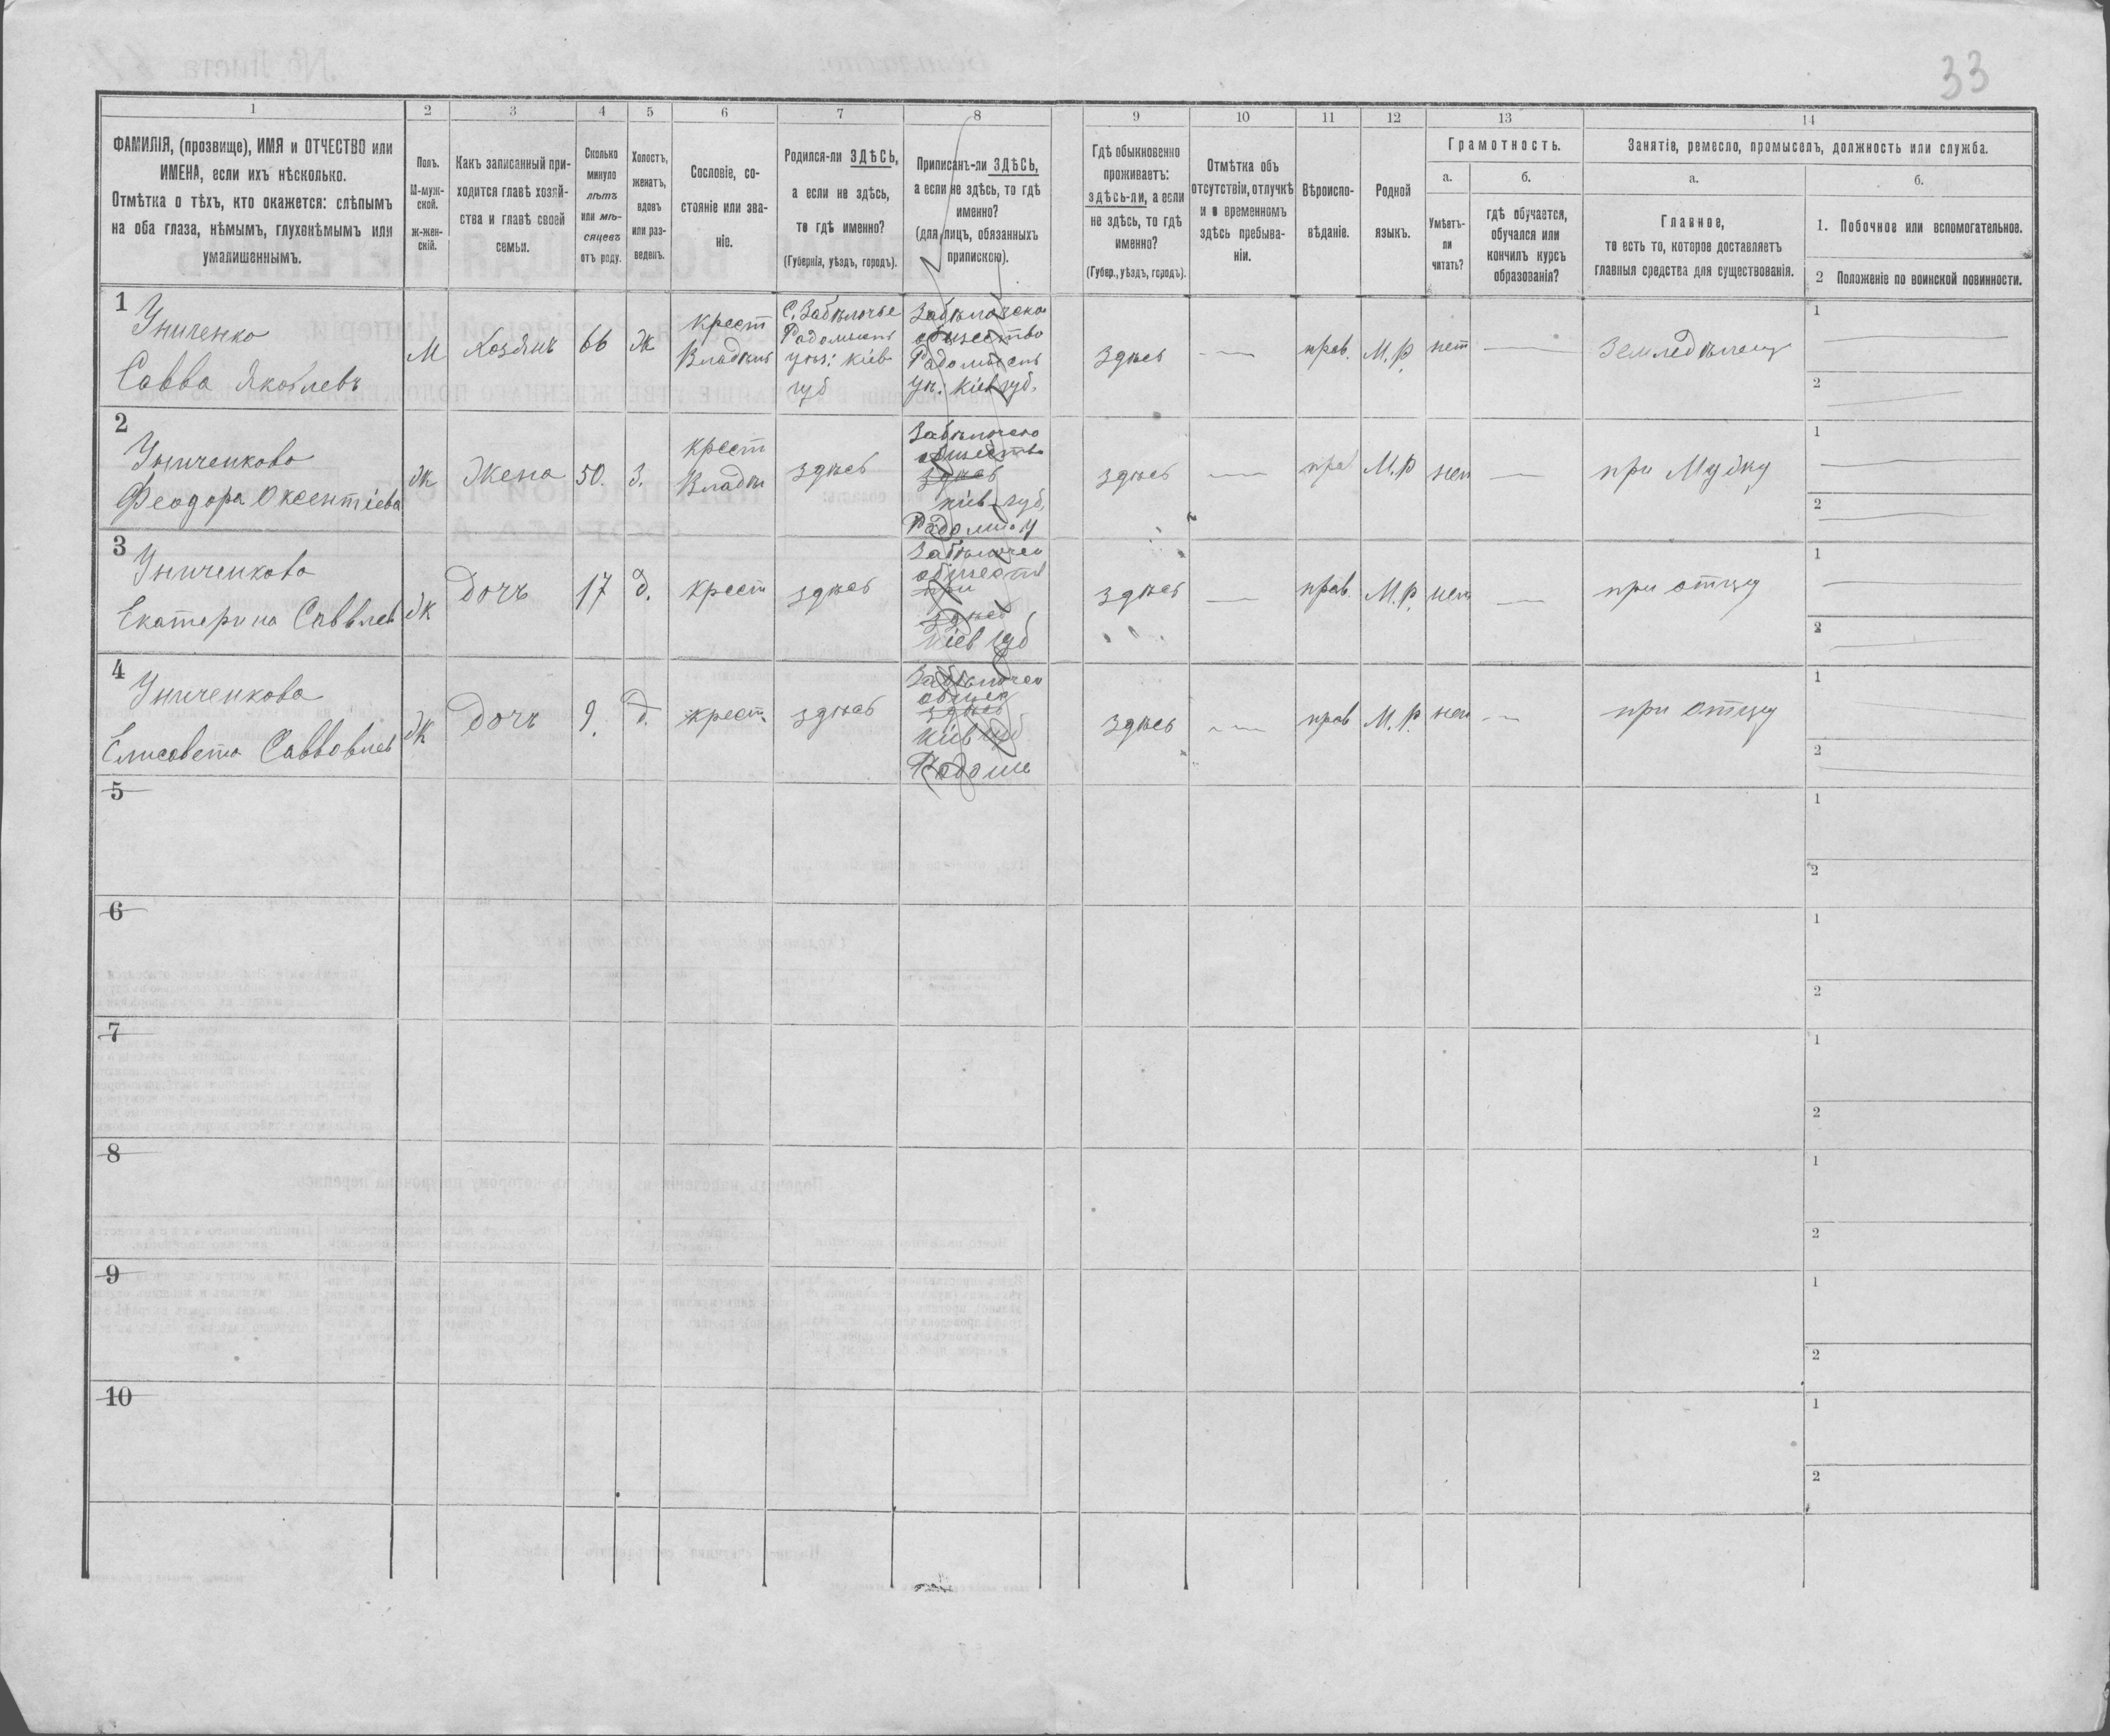 33
1 2 3 4 5 6 7 8 9 10 11 12 13 14
ФАМИЛІЯ, (прозвище), ИМЯ и ОТЧЕСТВО или
ИМЕНА, если ихъ нѣсколько.
Отмѣтка о тѣхъ, кто окажется: слѣпымъ
на оба глаза, нѣмымъ, глухонѣмымъ или
умалишеннымъ.
Полъ.
М-муж-
ской.
ж-жен-
скій.
Какъ записанный при-
ходится главѣ хозяй-
ства и главѣ своей
семьи.
Сколько
минуло
лѣтъ
или мѣ-
сяцевъ
отъ роду.
Холостъ,
женатъ,
вдовъ
или раз-
веденъ.
Сословіе, со-
стояніе или зва-
ніе.
Родился-ли ЗДѢСЬ,
а если не здѣсь,
то гдѣ именно?
(Губернія, уѣздъ, городъ).
Приписанъ-ли ЗДѢСЬ,
а если не здѣсь, то гдѣ
именно?
(для лицъ, обязанныхъ
припискою).
Гдѣ обыкновенно
проживаетъ:
здѣсь-ли, а если
не здѣсь, то гдѣ
именно?
(Губер., уѣздъ, городъ).
Отмѣтка объ
отсутствіи, отлучкѣ
и о временномъ
здѣсь пребыва-
ніи.
Вѣроиспо-
вѣданіе.
Родной
языкъ.
Грамотность.
а.
Умѣетъ-
ли
читать?
б.
гдѣ обучается,
обучался или
кончилъ курсъ
образованія?
Занятіе, ремесло, промыселъ, должность или служба.
а.
Главное,
то есть то, которое доставляетъ
главныя средства для существованія.
б.
1. Побочное или вспомогательное.
2 Положеніе по воинской повинности.
1
Униченко
Савва Яковлевъ
М
Хозяинъ
66
Ж
крест
С. Забѣлочье
уѣз: Кіев
губ
общество
уѣ: Кіев губ.
здѣсь
прав.
М. Р.
нет
1
2
2
Униченкова
Феодора Оксентіева
Ж
Жена
50.
З.
крест
здѣсь
здѣсь
Кіев губ,
здѣсь
пра
М. Р
нет
при Мужу
1
2
3
Униченкова
Екатерина Саввлев
Ж
Дочь
17
д.
крест
здѣсь
при
здѣсь
Кіев губ
здѣсь
прав.
М. Р.
нет
при отцу
1
2
4
Униченкова
Елисавета Саввовлев
Ж
Дочь
9.
д.
крест.
здѣсь
здѣсь
Кіев губ
здѣсь
прав
М. Р.
нет
при отцу
1
2
5
1
2
6
1
2
7
1
2
8
1
2
9
1
2
10
1
2